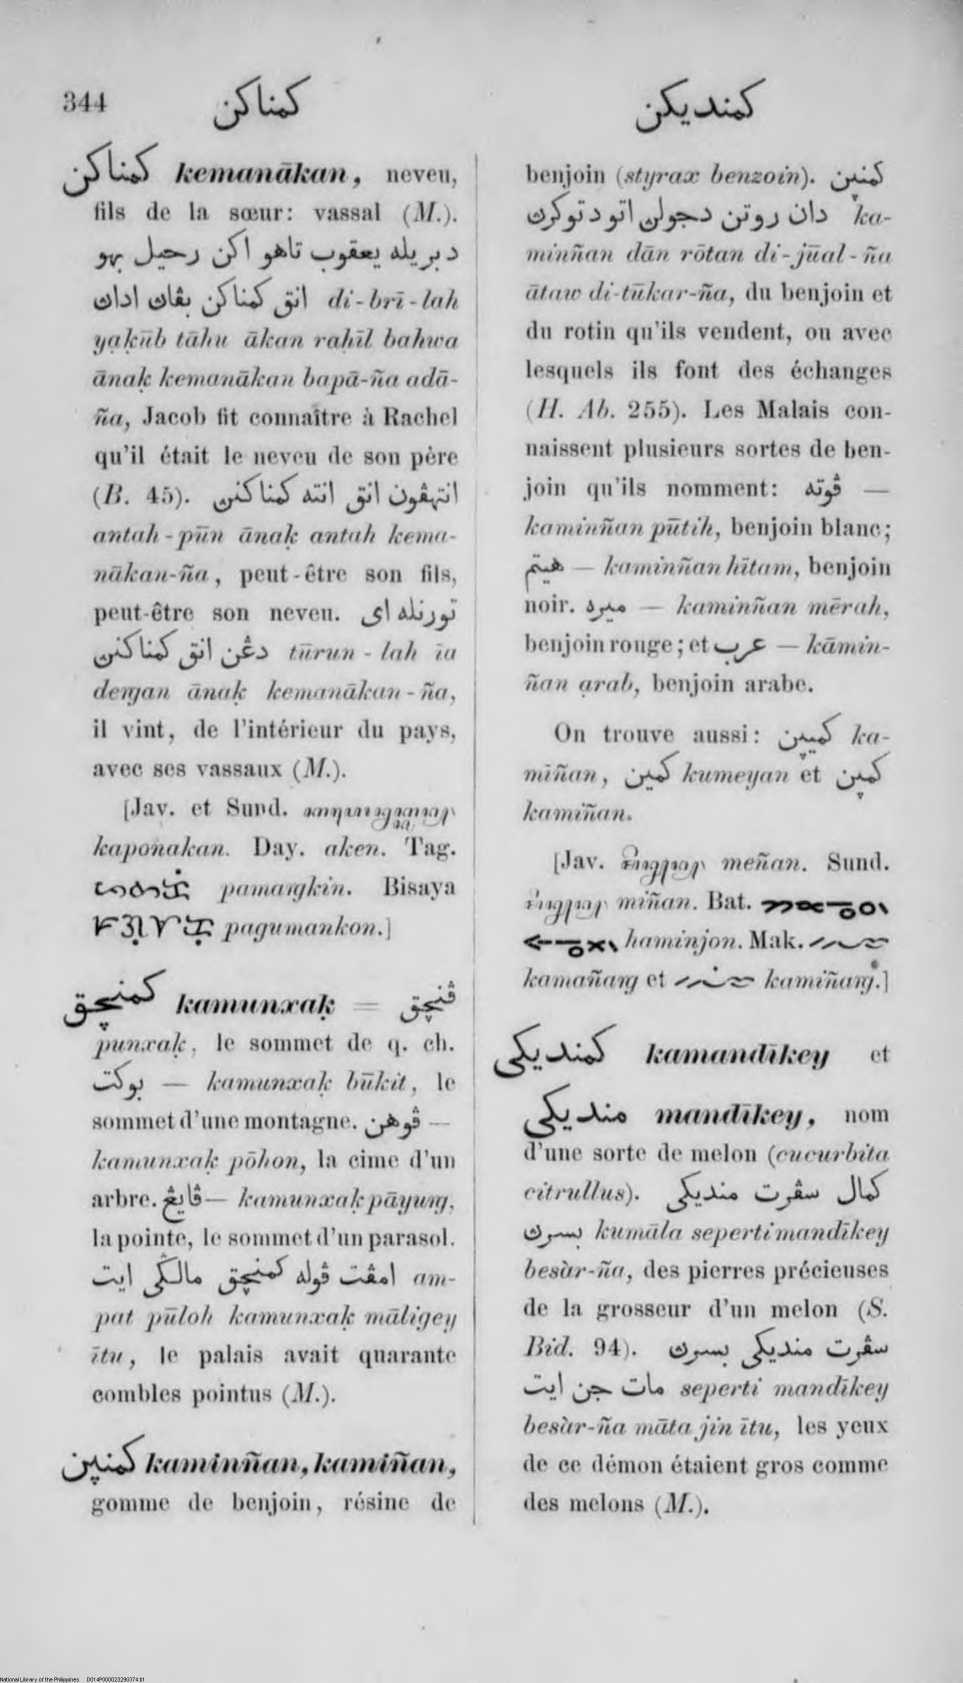 344
كمناكن
كمنديكن
كمناكن kemanākan, neveu,
fils de la sœur: vassal (M.).
دبريله يعقوب تاهو اكن رحيل بهو
انق كمناكن بڤاڽ اداڽ di-brī-lah
yaḳūb tāhu ākan rahīl bahwa
ānaḳ kemanākan bapā-ña adā-
ña, Jacob fit connaître à Rachel
qu'il était le neveu de son père
(B. 45). انتهڤون انق انته كمناكنڽ
antah-pūn ānaḳ antah kema-
nākan-ña, peut-être son fils,
peut-être son neveu. تورنله اى
دڠن انق كمناكنڽ tūrun-lah īa
deṅgan ānaḳ kemanākan-ña,
il vint, de l'intérieur du pays,
avec ses vassaux (M.).
[Jav. et Sund.
kaponakan. Day. aken. Tag.
pamaṅgkin. Bisaya
pagumankon.]
كمنچق kamunxaḳ = ڤنچق
punxaḳ, le sommet de q. ch.
بوكت — kamunxaḳ būkit, le
sommet d'une montagne. ڤوهن —
kamunxaḳ pōhon, la cime d'un
arbre. ڤايڠ — kamunxaḳ pāyuṅg,
la pointe, le sommet d'un parasol.
امڤت ڤوله كمنچق مالڬى ايت am-
pat pūloh kamunxaḳ māligey
ītu, le palais avait quarante
combles pointus (M.).
كمنين kaminñan, kamiñan,
gomme de benjoin, résine de
benjoin (styrax benzoin). كمنين
دان روتن دجولڽ اتو دتوكرڽ ka-
minñan dān rōtan di-jūal-ña
ātaw di-tūkar-ña, du benjoin et
du rotin qu'ils vendent, ou avec
lesquels ils font des échanges
(H. Ab. 255). Les Malais con-
naissent plusieurs sortes de ben-
join qu'ils nomment: ڤوته —
kaminñan pūtih, benjoin blanc;
هيتم — kaminñan hītam, benjoin
noir. ميره — kaminñan mērah,
benjoin rouge; et عرب — kāmin-
ñan arab, benjoin arabe.
On trouve aussi: ka-
miñan, كمين kumeyan et
kamiñan.
[Jav. meñan. Sund.
miñan. Bat.
haminjon. Mak.
kamañaṅg et kamiñaṅg.]
كمنديكى kamandīkey et
منديكى mandīkey, nom
d'une sorte de melon (cucurbita
citrullus). كمال سڤرت منديكى
بسرڽ kumāla seperti mandīkey
besàr-ña, des pierres précieuses
de la grosseur d'un melon (S.
Bid. 94). سڤرت منديكى بسرڽ
مات جن ايت seperti mandīkey
besàr-ña māta jin ītu, les yeux
de ce démon étaient gros comme
des melons (M.).
National Library of the Philippines